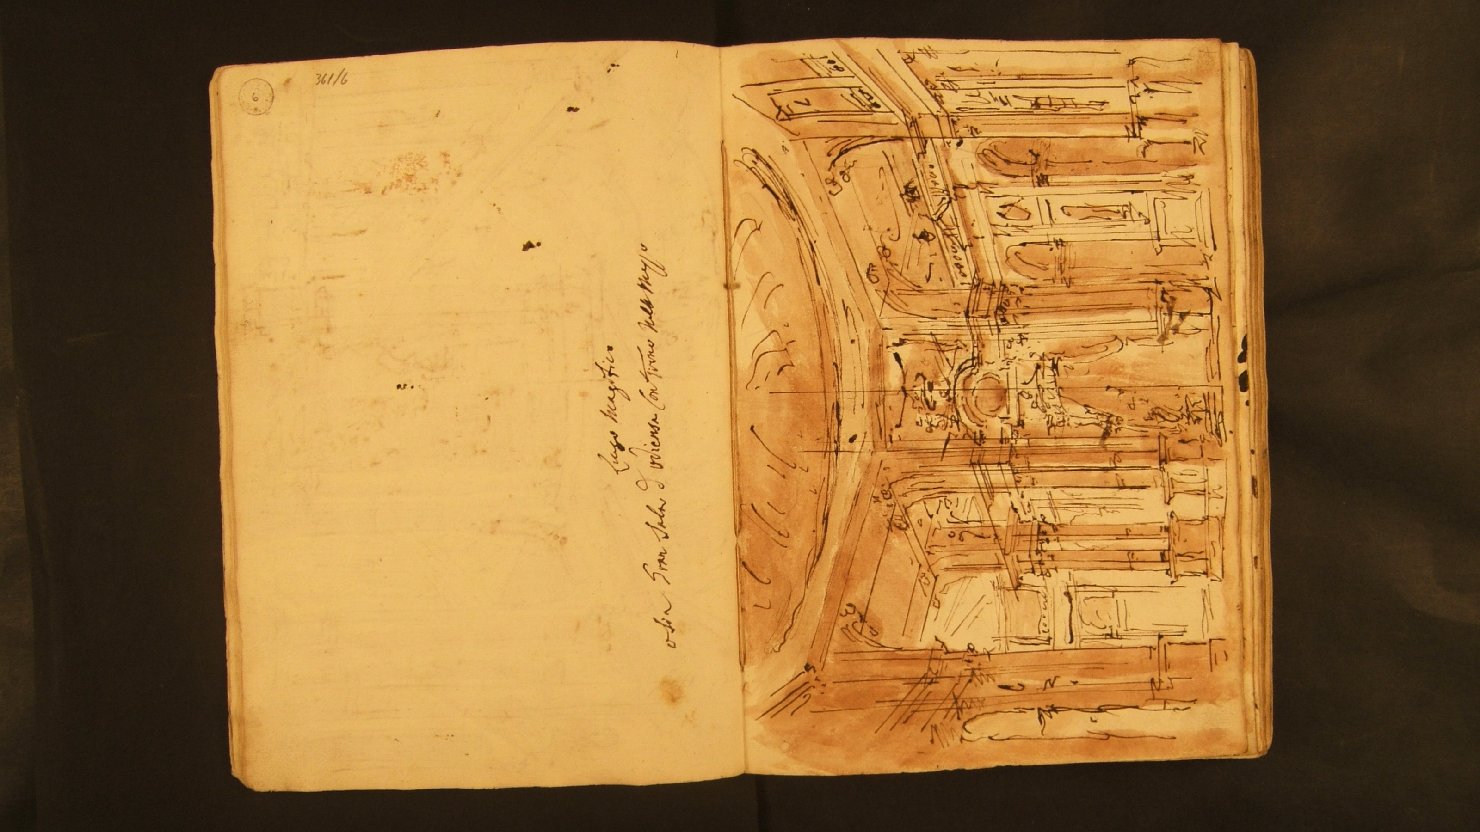 361/6
6
Luogo Magnifico
o sia Gran Sala d'Udienza con Trono nel Mezzo